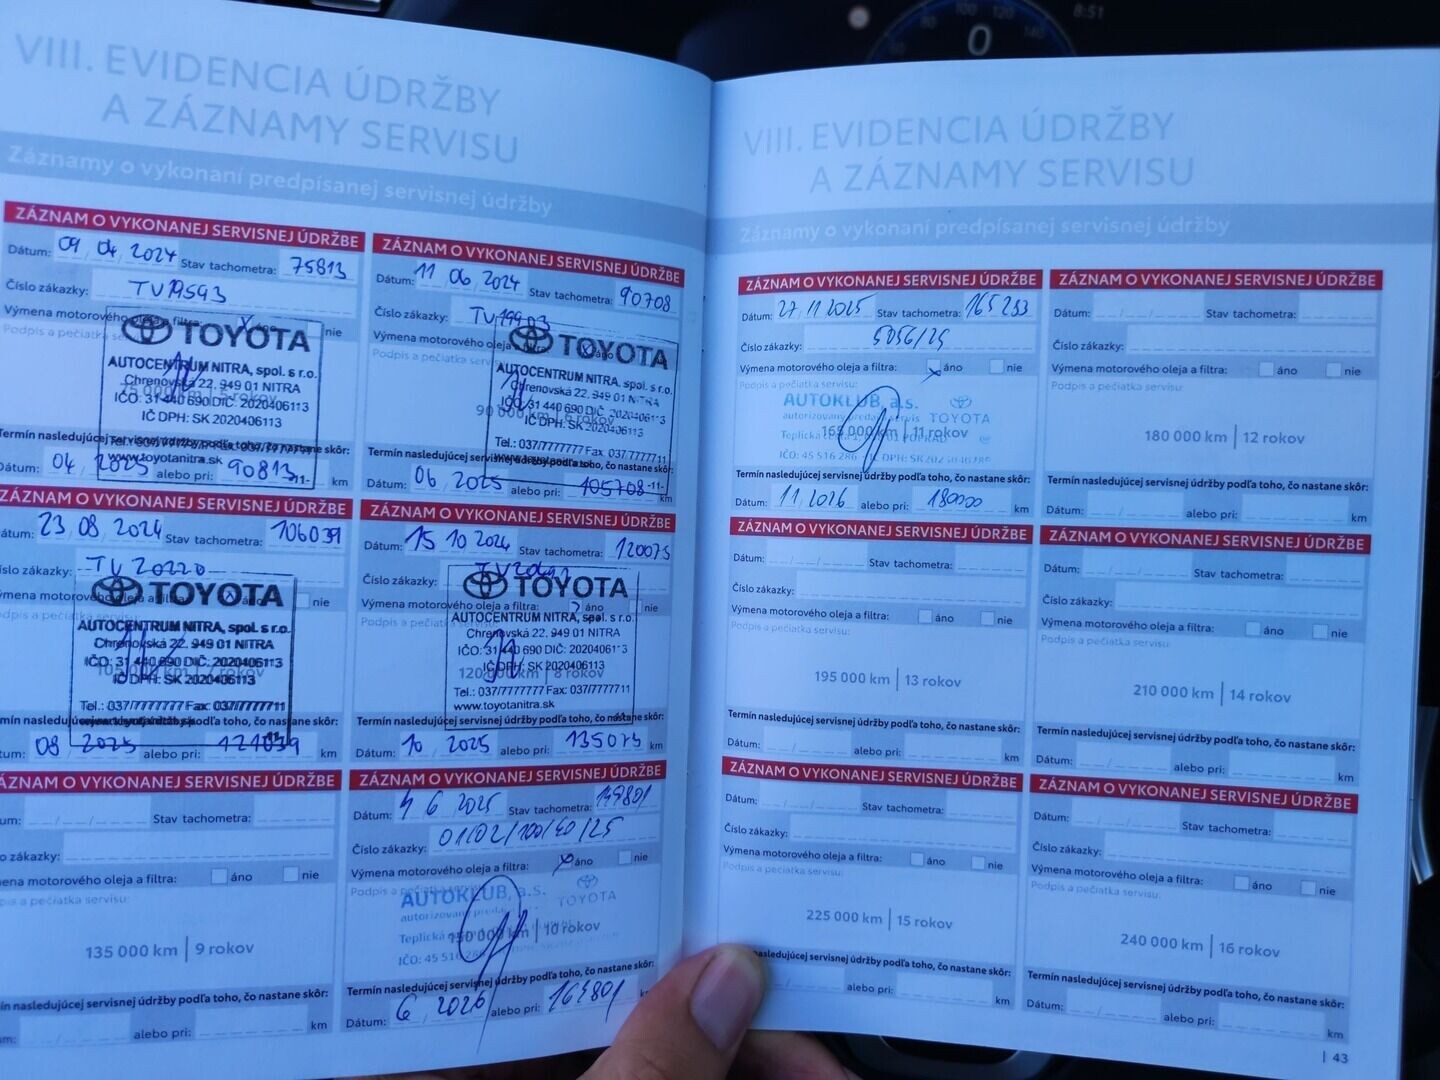 VIII. EVIDENCIA ÚDRŽBY
A ZÁZNAMY SERVISU
Záznamy o vykonaní predpísanej servisnej údržby
ZÁZNAM O VYKONANEJ SERVISNEJ ÚDRŽBE
Dátum: 09 04 2024 Stav tachometra: 75813
Číslo zákazky: TV19593
Výmena motorového oleja a filtra: X áno nie
Podpis a pečiatka
TOYOTA
AUTOCENTRUM NITRA, spol. s r.o.
Chrenovská 22, 949 01 NITRA
IČO: 31 440 690 DIČ: 2020406113
IČ DPH: SK 2020406113
www.toyotanitra.sk
Termín nasledujúcej servisnej údržby podľa toho, čo nastane skôr:
04 2025 alebo pri: 90813 km
ZÁZNAM O VYKONANEJ SERVISNEJ ÚDRŽBE
Dátum: 11 06 2024 Stav tachometra: 90708
Číslo zákazky:
Výmena motorového oleja a filtra:
Podpis a pečiatka
TOYOTA
AUTOCENTRUM NITRA, spol. s r.o.
Chrenovská 22, 949 01 NITRA
IČO: 31 440 690 DIČ: 2020406113
IČ DPH: SK 2020406113
Tel.: 037/7777777 Fax: 037/7777711
Termín nasledujúcej servisnej údržby podľa toho, čo nastane skôr:
Dátum: 06 2025 alebo pri: 105708 km
ZÁZNAM O VYKONANEJ SERVISNEJ ÚDRŽBE
23 08 2024 Stav tachometra: 106039
TV 20220
TOYOTA
AUTOCENTRUM NITRA, spol. s r.o.
Chrenovská 22, 949 01 NITRA
IČO: 31 440 690 DIČ: 2020406113
IČ DPH: SK 2020406113
Tel.: 037/7777777 Fax: 037/7777711
podľa toho, čo nastane skôr:
08 2025 alebo pri: 121039 km
ZÁZNAM O VYKONANEJ SERVISNEJ ÚDRŽBE
Dátum: 15 10 2024 Stav tachometra: 120075
Číslo zákazky:
Výmena motorového oleja a filtra: áno nie
TOYOTA
AUTOCENTRUM NITRA, spol. s r.o.
Chrenovská 22, 949 01 NITRA
IČO: 31 440 690 DIČ: 2020406113
IČ DPH: SK 2020406113
8 rokov
Tel.: 037/7777777 Fax: 037/7777711
www.toyotanitra.sk
Termín nasledujúcej servisnej údržby podľa toho, čo nastane skôr:
Dátum: 10 2025 alebo pri: 135075 km
ZÁZNAM O VYKONANEJ SERVISNEJ ÚDRŽBE
Stav tachometra:
Číslo zákazky:
motorového oleja a filtra: áno nie
a pečiatka servisu:
135 000 km | 9 rokov
nasledujúcej servisnej údržby podľa toho, čo nastane skôr:
alebo pri: km
ZÁZNAM O VYKONANEJ SERVISNEJ ÚDRŽBE
Dátum: 4 6 2025 Stav tachometra: 149801
Číslo zákazky: 01/02/100/40/25
Výmena motorového oleja a filtra: X áno nie
AUTOKLUB, a.s.
TOYOTA
Teplická
150 000 km | 10 rokov
Termín nasledujúcej servisnej údržby podľa toho, čo nastane skôr:
Dátum: 6 2026 alebo pri: 164801
VIII. EVIDENCIA ÚDRŽBY
A ZÁZNAMY SERVISU
Záznamy o vykonaní predpísanej servisnej údržby
ZÁZNAM O VYKONANEJ SERVISNEJ ÚDRŽBE
Dátum: 27 11 2025 Stav tachometra: 165233
Číslo zákazky: 5056/25
Výmena motorového oleja a filtra: X áno nie
Podpis a pečiatka servisu:
AUTOKLUB, a.s.
TOYOTA
165 000 km | 11 rokov
IČO: 45 516 286
Termín nasledujúcej servisnej údržby podľa toho, čo nastane skôr:
Dátum: 11 2026 alebo pri: 180000 km
ZÁZNAM O VYKONANEJ SERVISNEJ ÚDRŽBE
Dátum: Stav tachometra:
Číslo zákazky:
Výmena motorového oleja a filtra: áno nie
Podpis a pečiatka servisu:
180 000 km | 12 rokov
Termín nasledujúcej servisnej údržby podľa toho, čo nastane skôr:
Dátum: alebo pri: km
ZÁZNAM O VYKONANEJ SERVISNEJ ÚDRŽBE
Dátum: Stav tachometra:
Číslo zákazky:
Výmena motorového oleja a filtra: áno nie
Podpis a pečiatka servisu:
195 000 km | 13 rokov
Termín nasledujúcej servisnej údržby podľa toho, čo nastane skôr:
Dátum: alebo pri: km
ZÁZNAM O VYKONANEJ SERVISNEJ ÚDRŽBE
Dátum: Stav tachometra:
Číslo zákazky:
Výmena motorového oleja a filtra: áno nie
Podpis a pečiatka servisu:
210 000 km | 14 rokov
Termín nasledujúcej servisnej údržby podľa toho, čo nastane skôr:
Dátum: alebo pri: km
ZÁZNAM O VYKONANEJ SERVISNEJ ÚDRŽBE
Dátum: Stav tachometra:
Číslo zákazky:
Výmena motorového oleja a filtra: áno nie
Podpis a pečiatka servisu:
225 000 km | 15 rokov
nasledujúcej servisnej údržby podľa toho, čo nastane skôr:
alebo pri: km
ZÁZNAM O VYKONANEJ SERVISNEJ ÚDRŽBE
Dátum: Stav tachometra:
Číslo zákazky:
Výmena motorového oleja a filtra: áno nie
Podpis a pečiatka servisu:
240 000 km | 16 rokov
Termín nasledujúcej servisnej údržby podľa toho, čo nastane skôr:
Dátum: alebo pri: km
| 43
0
8:51